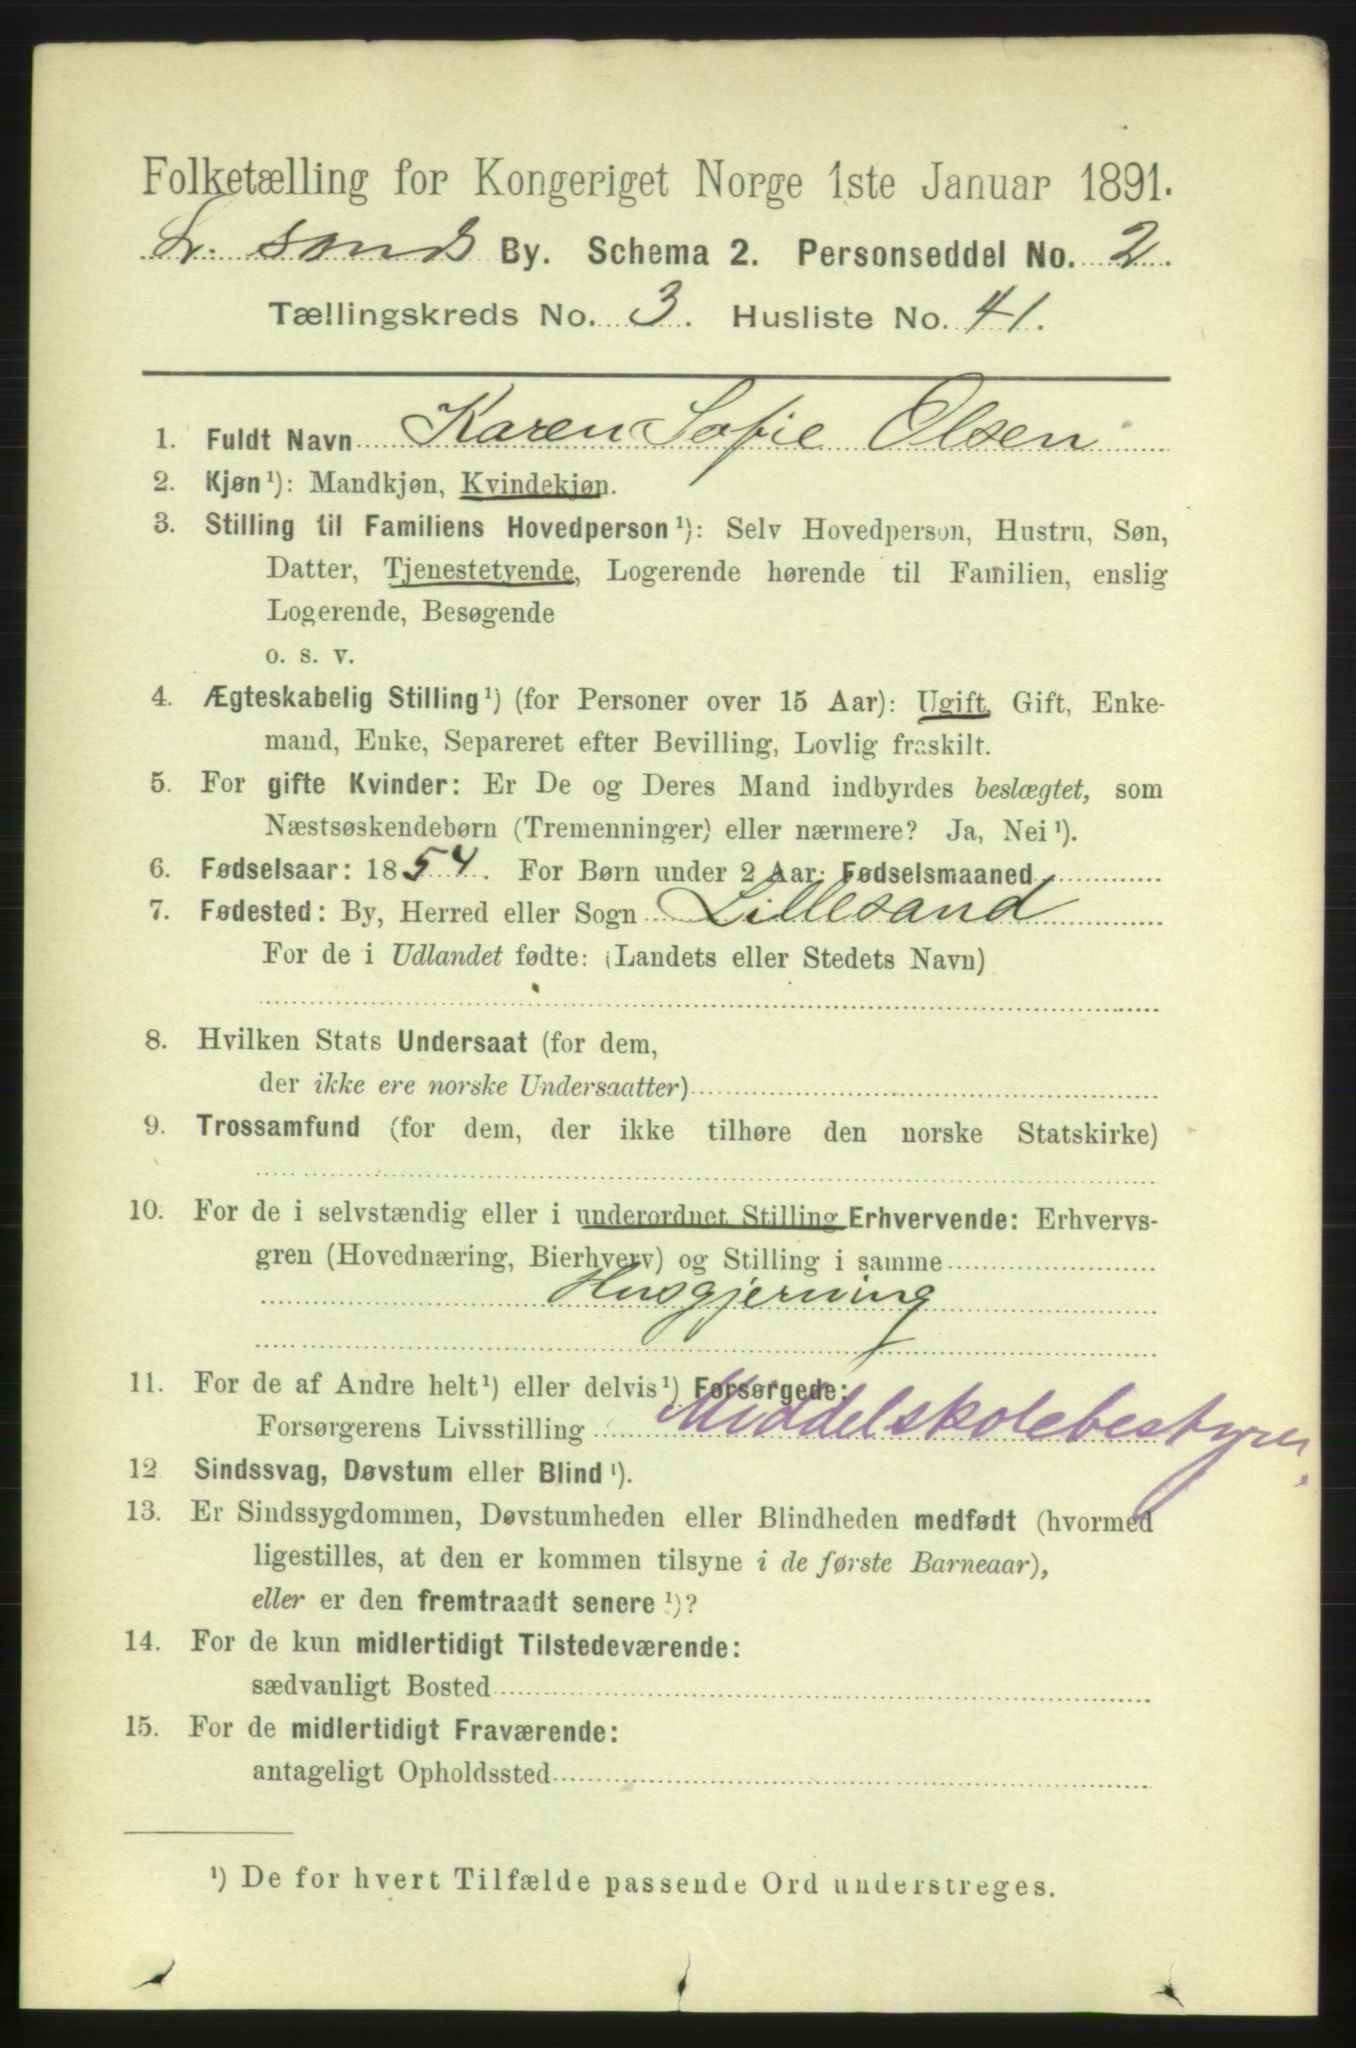 Folketælling for Kongeriget Norge 1ste Januar 1891.
L. sands By. Schema 2. Personseddel No. 2.
Tællingskreds No. 3. Husliste No. 41.
1. Fuldt Navn Karen Sofie Olsen
2. Kjøn¹): Mandkjøn, Kvindekjøn.
3. Stilling til Familiens Hovedperson¹): Selv Hovedperson, Hustru, Søn,
Datter, Tjenestetyende, Logerende hørende til Familien, enslig
Logerende, Besøgende
o. s. v.
4. Ægteskabelig Stilling¹) (for Personer over 15 Aar): Ugift, Gift, Enke-
mand, Enke, Separeret efter Bevilling, Lovlig fraskilt.
5. For gifte Kvinder: Er De og Deres Mand indbyrdes beslægtet, som
Næstsøskendebørn (Tremenninger) eller nærmere? Ja, Nei¹).
6. Fødselsaar: 1854. For Børn under 2 Aar: Fødselsmaaned
7. Fødested: By, Herred eller Sogn Lillesand
For de i Udlandet fødte: (Landets eller Stedets Navn)
8. Hvilken Stats Undersaat (for dem,
der ikke ere norske Undersaatter)
9. Trossamfund (for dem, der ikke tilhøre den norske Statskirke)
10. For de i selvstændig eller i underordnet Stilling Erhvervende: Erhvervs-
gren (Hovednæring, Bierhverv) og Stilling i samme
Husgjerning
11. For de af Andre helt¹) eller delvis¹) Forsørgede:
Forsørgerens Livsstilling Middelskolebestyrer.
12 Sindssvag, Døvstum eller Blind¹).
13. Er Sindssygdommen, Døvstumheden eller Blindheden medfødt (hvormed
ligestilles, at den er kommen tilsyne i de første Barneaar),
eller er den fremtraadt senere¹)?
14. For de kun midlertidigt Tilstedeværende:
sædvanligt Bosted
15. For de midlertidigt Fraværende:
antageligt Opholdssted
¹) De for hvert Tilfælde passende Ord understreges.